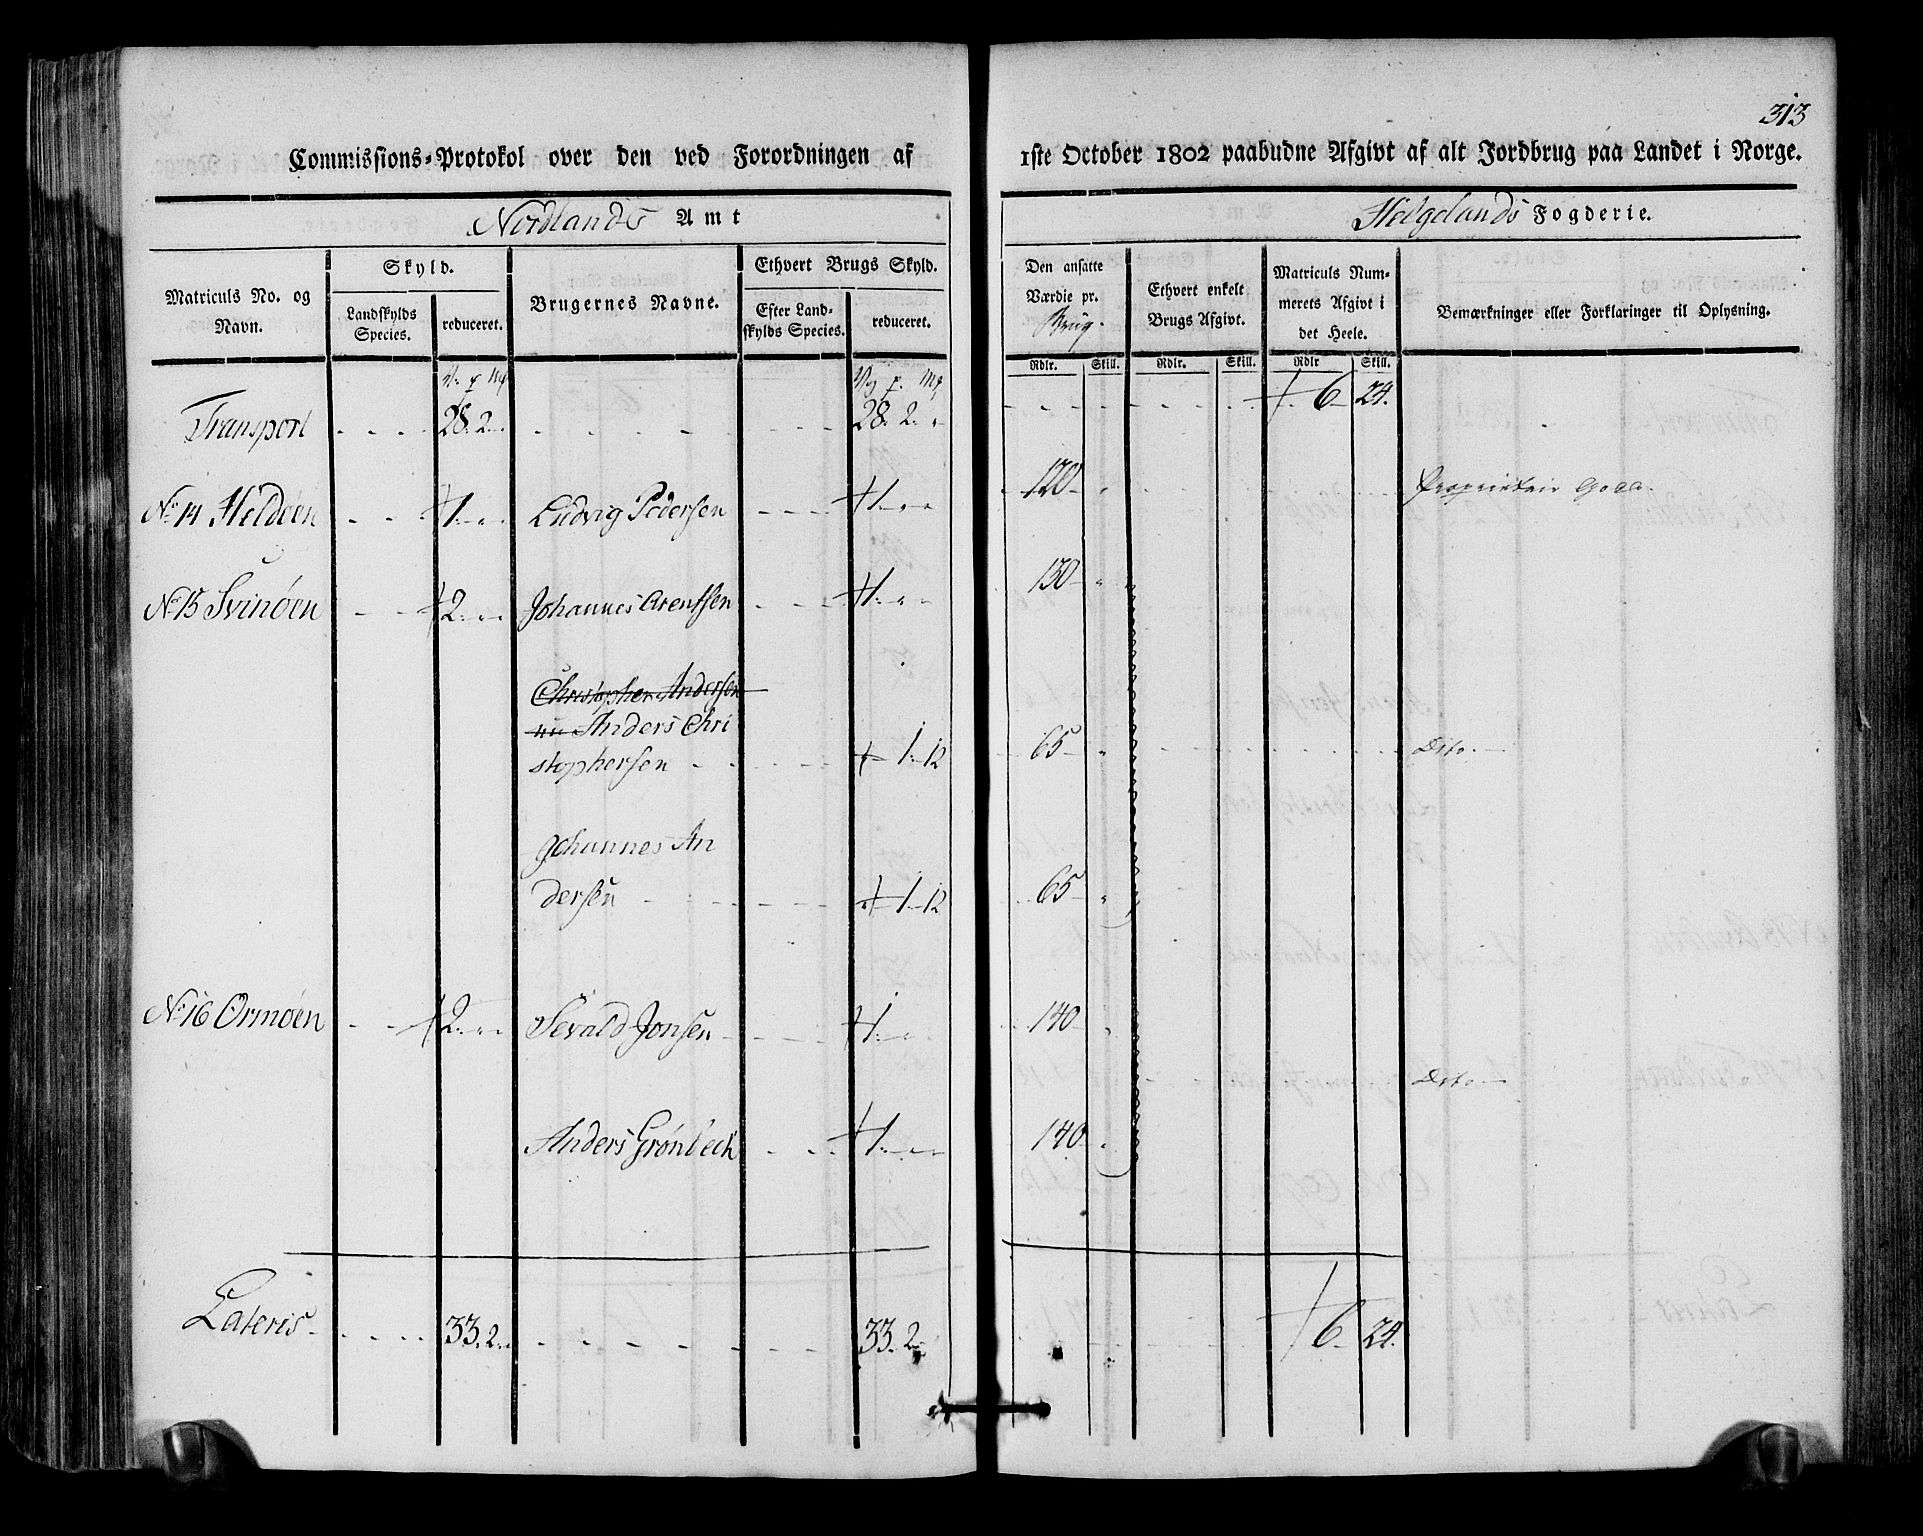 313
Commissions-Protokol over den ved Forordningen af 1ste October 1802 paabudne Afgivt af alt Jordbrug paa Landet i Norge.
Nordlands Amt Helgelands Fogderie.
Matriculs No. og Navn. Skyld. Landskylds Species. reduceret. Brugernes Navne. Ethvert Brugs Skyld. Efter Landskylds Species. reduceret. Den ansatte Værdie pr. Brug. Ethvert enkelt Brugs Afgivt. Matriculs Nummerets Afgivt i det Heele. Bemærkninger eller Forklaringer til Oplysning.
Rdlr. Skill. Rdlr. Skill. Rdlr Skill.
Transport 28. 2 28. 2. 6 24.
No 14 Heldøen 1 Ludvig Pedersen 1 120 Proprietair Gods.
No 15 Svinøen 2 Johannes Arentsen 1 130
Christopher Andersen
nu Anders Chri
stophersen 1 12 65 Dito
Johannes An
dersen 1 12 65
No 16 Ormøen 2 Sevald Jonsen 1 140
Dito
Anders Grønbech 1 140
Lateris 33. 2 33. 2 6 24.